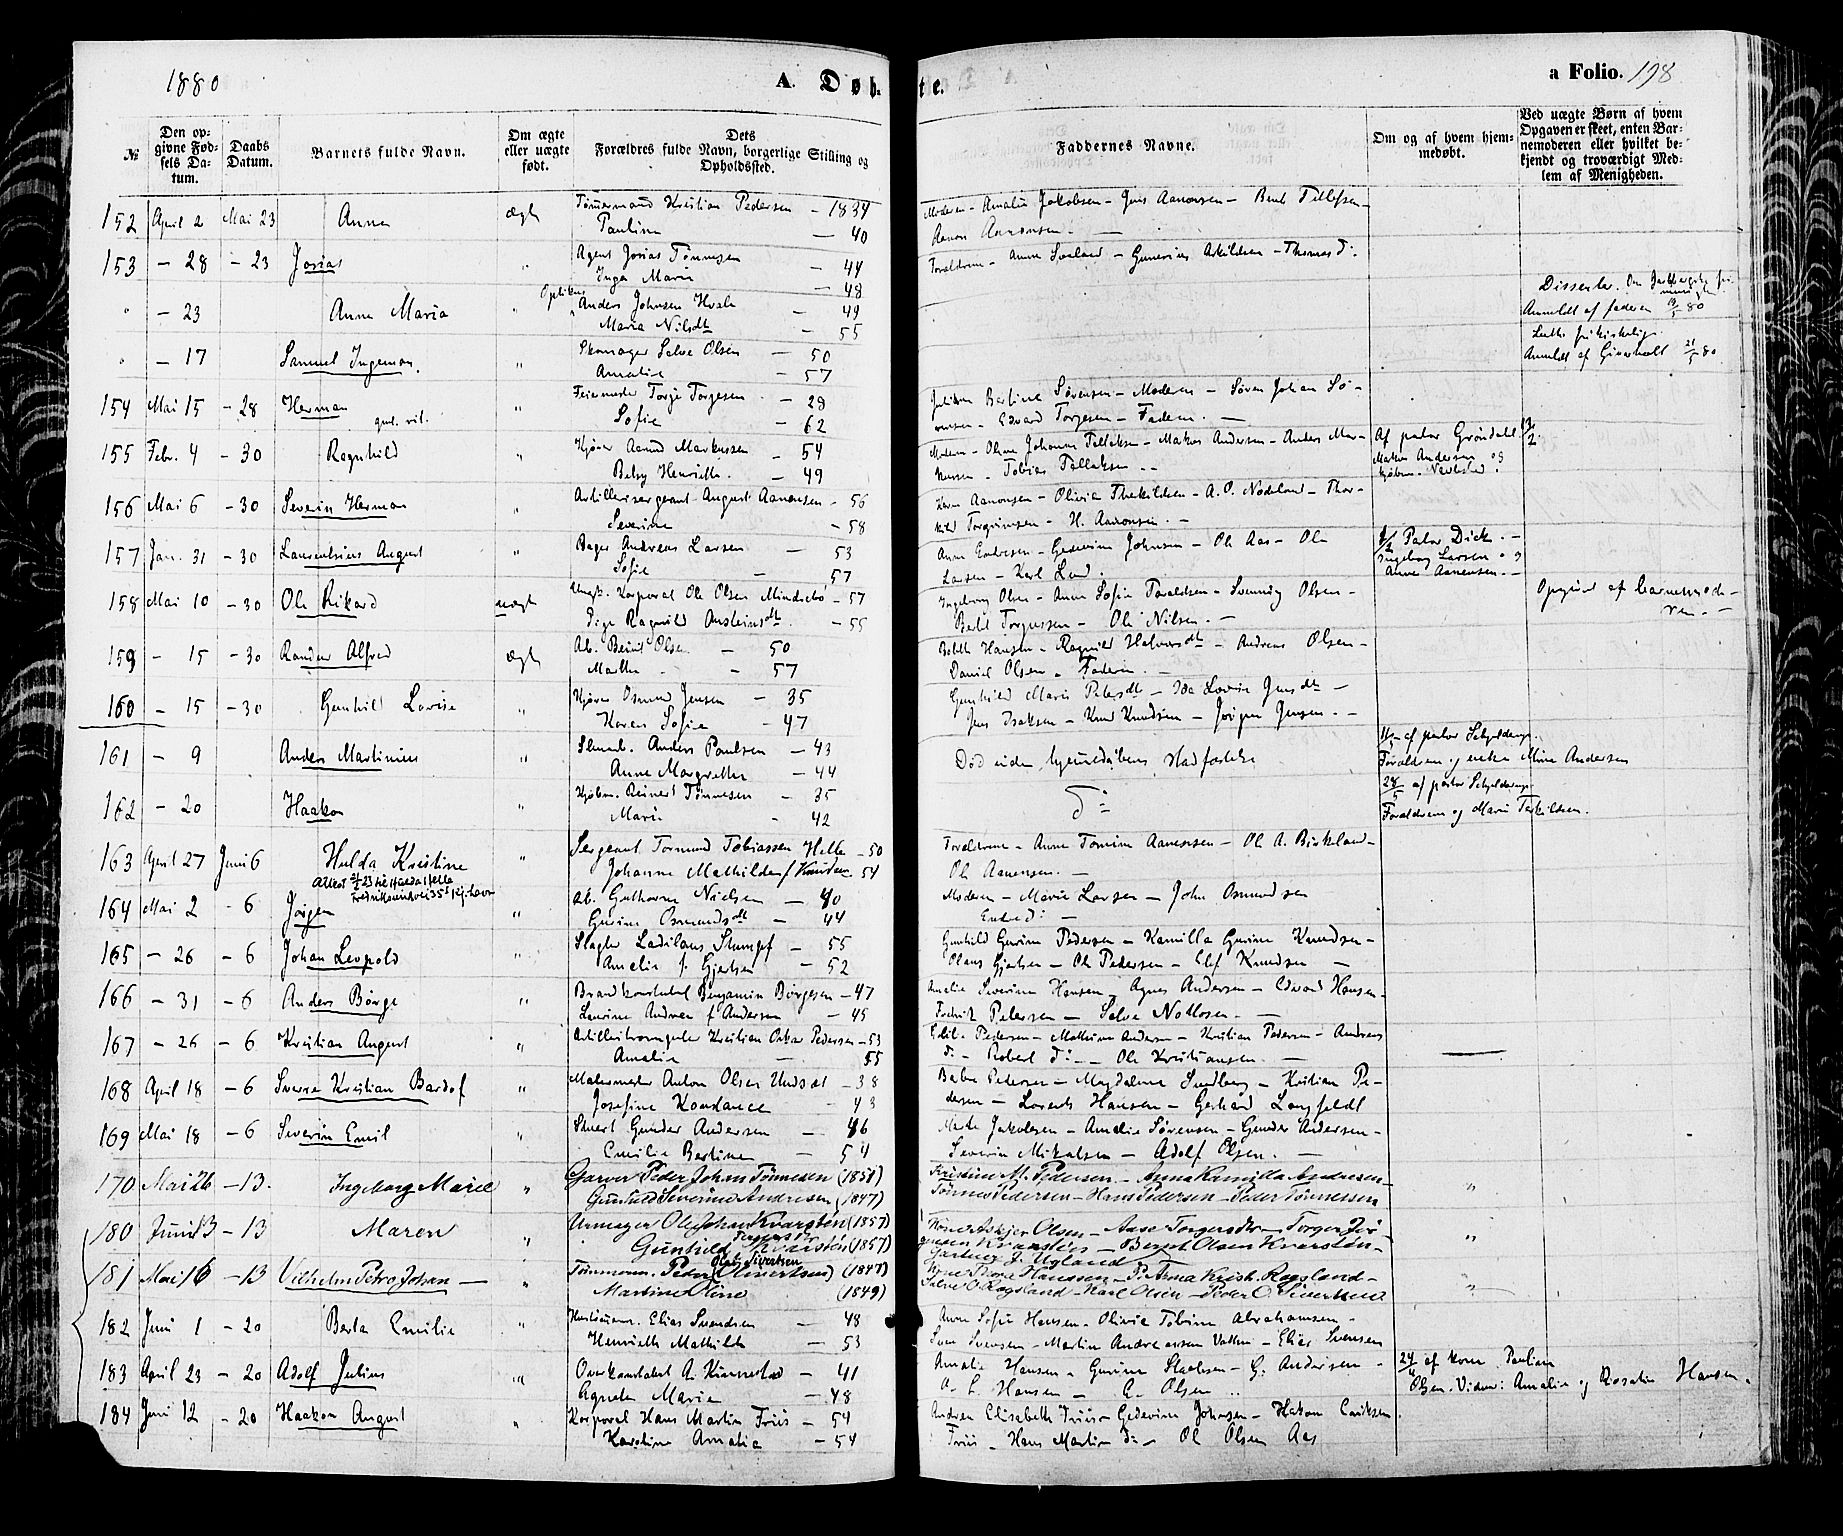 1880
A. Døb-
te.
a Folio. 198
№
Den opgivne Fødsels Datum.
Daabs Datum.
Barnets fulde Navn.
Om ægte eller uægte født.
Dets Forældres fulde Navn, borgerlige Stilling og Opholdssted.
Faddernes Navne.
Om og af hvem hjemmedøbt.
Ved uægte Børn af hvem Opgaven er skeet, enten Barnemoderen eller hvilket bekjendt og troværdigt Medlem af Menigheden.
152 April 2 Mai 23 Anna ægte Tømmermand Kristian Pedersen - 1834
Pauline - 40
Moderen - Amalie Jakobsen - Jens Aanonsen - Bent Tellefsen -
Aanon Aanonsen. -
153 - 28 - 23 Josias " Agent Josias Tønnesen - 44
Inga Maria - 48
Forældrene - Anne Sveland - Gunerius Arkildsen - Thomas d:
" - 23 Anne Maria " Anders Johnsen Hvale - 49
Maria Nilsdt - 55
Dissenter.
Anmeldt af faderen 80
" - 17 Samuel Ingeman. " Skomager Salve Olsen - 50
Amalie - 57
Luth. frikirkelig.
154 Mai 15 - 28 Herman " Feiermester Torje Torgesen - 28
Sofie - 62
Bertine Sørensen - Moderen - Søren Johan Sø-
rensen - Edvard Torgesen - Faderen. -
155 Febr. 4 - 30 Ragnhild " Aanund Markussen - 54
Betsy Henriette. - 49
Moderen - Oline Johanne Tellefsen - Makus Andersen - Anders Mar-
kussen - Tobias Tellaksen - -
Af pastor Grøndahl
Makus Andersen og
156 Mai 6 - 30 Severin Herman " Artillerisergeant August Aanonsen - 56
Severine - 58
Karen Aanonsen - Olivia Therkildsen - A. O. Nodeland - Thor-
kild Torgrimsen - H. Aanonsen. -
157 Jan. 31 - 30 Laurentsius August " Bager Andreas Larsen - 53
Sofie - 57
Anne Endresen - Gedevine Johnsen - Ole Aas - Ole
Larsen - Karl Lund.
Pastor Dick. -
Ingeborg Larsen og
Anne Aanensen. -
158 Mai 10 - 30 Ole Rikard uægte Ungk. Korporal Ole Olsen Mindrebø - 57
Pige Ragnild Ansteinsdt. - 55
Ingeborg Olsen - Anne Sofie Toraldsen - Svennung Olsen -
Bertel Torgersen - Ole Nilsen. -
Opgivet af barnemode-
ren. -
159 - 15 - 30 Randur Alfred ægte Ab. Beint Olsen - 50
Malthe - 57
Bolette Hansen - Ragnild Halvorsdt - Andreas Olsen -
Daniel Olsen - Faderen. -
160 - 15 - 30 Gunhild Lovise " Kjører Osmund Jensen - 35
Karen Sofie - 47
Gunhild Marie Petersdt - Ida Lovise Jensdt -
Jens Isaksen - Knud Knudsen - Jørgen Jensen. -
161 - 9 Anders Martinius " Anders Paulsen - 43
Anne Margrethe - 44
Død uden hjemmedaabens stadfæstelse
af pastor Schjelderup.
Forældrene og enke Mine Andersen
162 - 20 Haakon " Reinert Tønnesen - 35
Marie - 42
d:
af pastor Schjelderup
Forældrene og Marie Terkildsen.
163 April 27 Juni 6 Hulda Kristine " Sergeant Tormund Tobiassen Helle - 50
Johanne Mathilde f Knudsen 54
Forældrene - Anne Tomine Aanensen - Ole A. Birkeland -
Ole Aanensen. -
164 Mai 2 - 6 Jørgen " Ab. Guthorm Nielsen - 40
Gurine Osmundsdt - 44
Moderen - Marie Larsen - John Osmundsen
Endre d: -
165 - 26 - 6 Johan Leopold " Slagter Ladilaus Stumpf - 55
Amelia f. Gjertsen - 52
Gunhild Gurine Pedersen - Kamilla Gurine Knudsen -
Olaus Gjertsen - Ole Pedersen - Elef Knudsen -
166 - 31 - 6 Anders Børge " Brandkonstabel Benjamin Børgesen - 47
Laurine Andrea f Andersen - 45
Amelie Severine Hansen - Agnes Andersen - Edvard Hansen -
Fredrik Petersen - Salve Nottosen. -
167 - 26 - 6 Kristian August " Kristian Oskar Pedersen - 53
Amalie - 55
Pedersen - Mathine Andersen - Kristian Pedersen - Andreas
d: - Robert d: - Ole Kristiansen. -
168 April 18 - 6 Sverre Kristian Bardof " Malermester Anton Olsen Undsæt - 38
Josefine Konstance - 43
Pedersen - Magdalena Sundberg - Kristian Pe-
dersen - Lorents Hansen - Gerhard Langfeldt
169 Mai 18 - 6 Severin Emil " Stuert Gunder Andersen - 46
Emilie Bertine - 54
Marte Jakobsen - Amalie Sørensen - Gunder Andersen -
Severin Mikalsen - Adolf Olsen. -
170 Mai 26 - 13. Ingeborg Marie " Garver Peder Johan Tønnesen (1851)
Severine Andresen (1847)
Kristine M. Pedersen - Anna Kamilla Andresen -
Tønnes Pedersen - Hans Pedersen - Peder Tønnessen "
180 Juni 3 - 13 Maren " Urmager Ole Johan Kvarstén (1857)
Gunhild Kvarstén (1857)
Asbjør Olsen - Aase Torgersdtr - Torger Jør-
gensen Kvarstén - Bernt Olsen Kvarstén -
Gartner J. Ugland "
181 Mai 16 - 13 Vilhelm Petro Johan - " Tømmerm. Peder Olivertsen (1848)
Martine Oline (1849)
Hanssen - P. Anna Krist. Rogsland -
Salve O. Rogsland - Karl Olsen - Peder O. Siversen "
182 Juni 1 - 20 Berta Emilie " Elias Svendsen - 48
Henriette Mathilde - 53
Anne Sofie Hansen - Olivia Tobine Abrahamsen -
Sven Svensen - Martin Andreassen Vatne - Elias Svensen
183 April 23 - 20 Adolf Julius " Overkonstabel A. Kinnestad - 41
Agnete Marie - 48
Amalie Hansen - Gurine Staalesen - G. Andersen -
A. L. Hansen - G. Olsen "
24/4 af kone Pauline
Olsen. Vidner: Amalie og Rosalie Hansen.
184 Juni 12 - 20 Haakon August " Korporal Hans Martin Friis - 54
Karoline Amalie - 54
Andrea Elisabeth Friis - Gedevine Johnsen - Hakon Eriksen
Friis - Hans Martin d: - Ole Olsen Aas